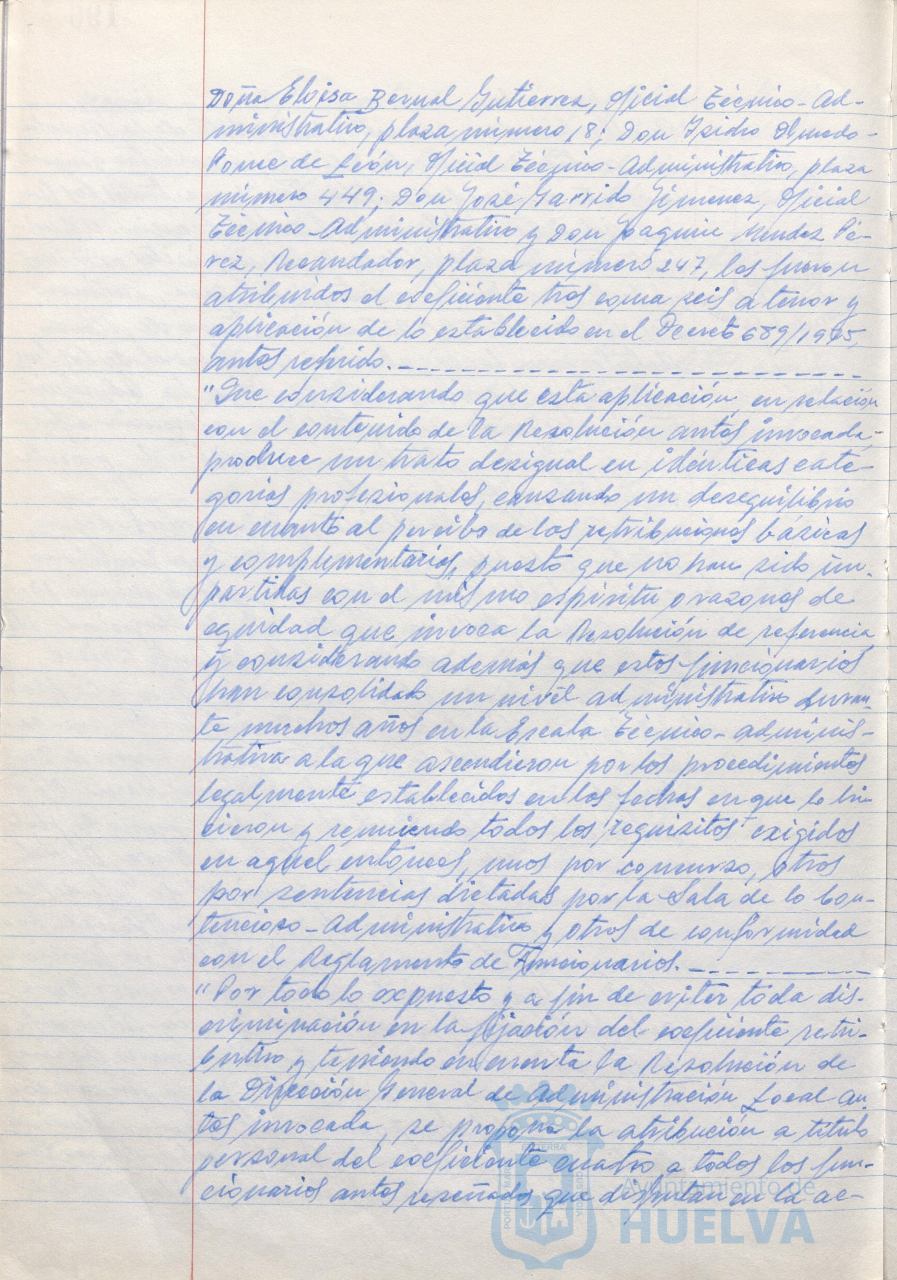 Doña Eloisa Bernal Gutierrez, Oficial Técnico-Ad-
ministrativo, plaza número 18; Don Isidro Olmedo-
Ponce de León, Oficial Técnico-Administrativo, plaza
número 449; Don José Garrido Jimenez, Oficial
Técnico-Administrativo y Don Joaquin Mendez Pé-
rez, Recaudador, plaza número 247, les fueron
atribuidos el coeficiente tres coma seis a tenor y
aplicación de lo establecido en el Decreto 689/1975,
antes referido.
"Que considerando que esta aplicación en relación
con el contenido de la Resolución antes invocada,
produce un trato desigual en idénticas cate-
gorias profesionales, causando un desequilibrio
en cuanto al percibo de las retribuciones básicas
y complementarias, puesto que no han sido im-
partidas con el mismo espíritu o razones de
equidad que invoca la Resolución de referencia
y considerando además que estos funcionarios
han consolidado un nivel administrativo duran-
te muchos años en la Escala Técnico-adminis-
trativa a la que ascendieron por los procedimientos
legalmente establecidos en las fechas en que lo hi-
cieron y reuniendo todos los requisitos exigidos
en aquel entónces, unos por concurso, otros
por sentencias dictadas por la Sala de lo Con-
tencioso-Administrativo y otros de conformidad
con el Reglamento de Funcionarios.
"Por todo lo expuesto y a fin de evitar toda dis-
criminación en la fijación del coeficiente retri-
butivo y teniendo en cuenta la Resolución de
la Dirección General de Administración Local an-
tes invocada, se propone la atribución a titulo
personal del coeficiente cuatro a todos los fun-
cionarios antes reseñados que disfrutan en la ac-
Ayuntamiento de
HUELVA